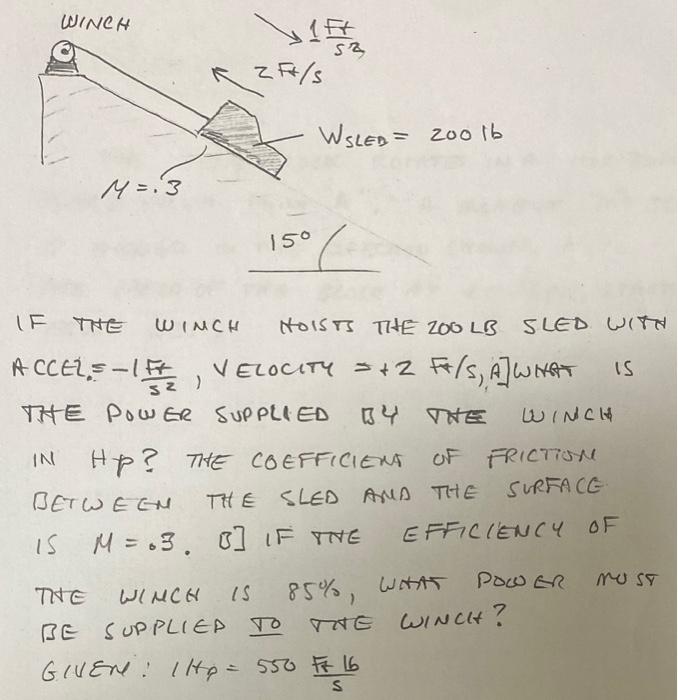 WINCH
1 Ft/s2
2 Ft/s
WSLED = 200 lb
M = .3
15°
IF THE WINCH HOISTS THE 200 LB SLED WITH
ACCEL. = -1 Ft/s2, VELOCITY = +2 Ft/s, A] WHAT IS
THE POWER SUPPLIED BY THE WINCH
IN Hp? THE COEFFICIENT OF FRICTION
BETWEEN THE SLED AND THE SURFACE
IS M = .3. B] IF THE EFFICIENCY OF
THE WINCH IS 85%, WHAT POWER MUST
BE SUPPLIED TO THE WINCH?
GIVEN: 1 Hp = 550 Ft lb/s